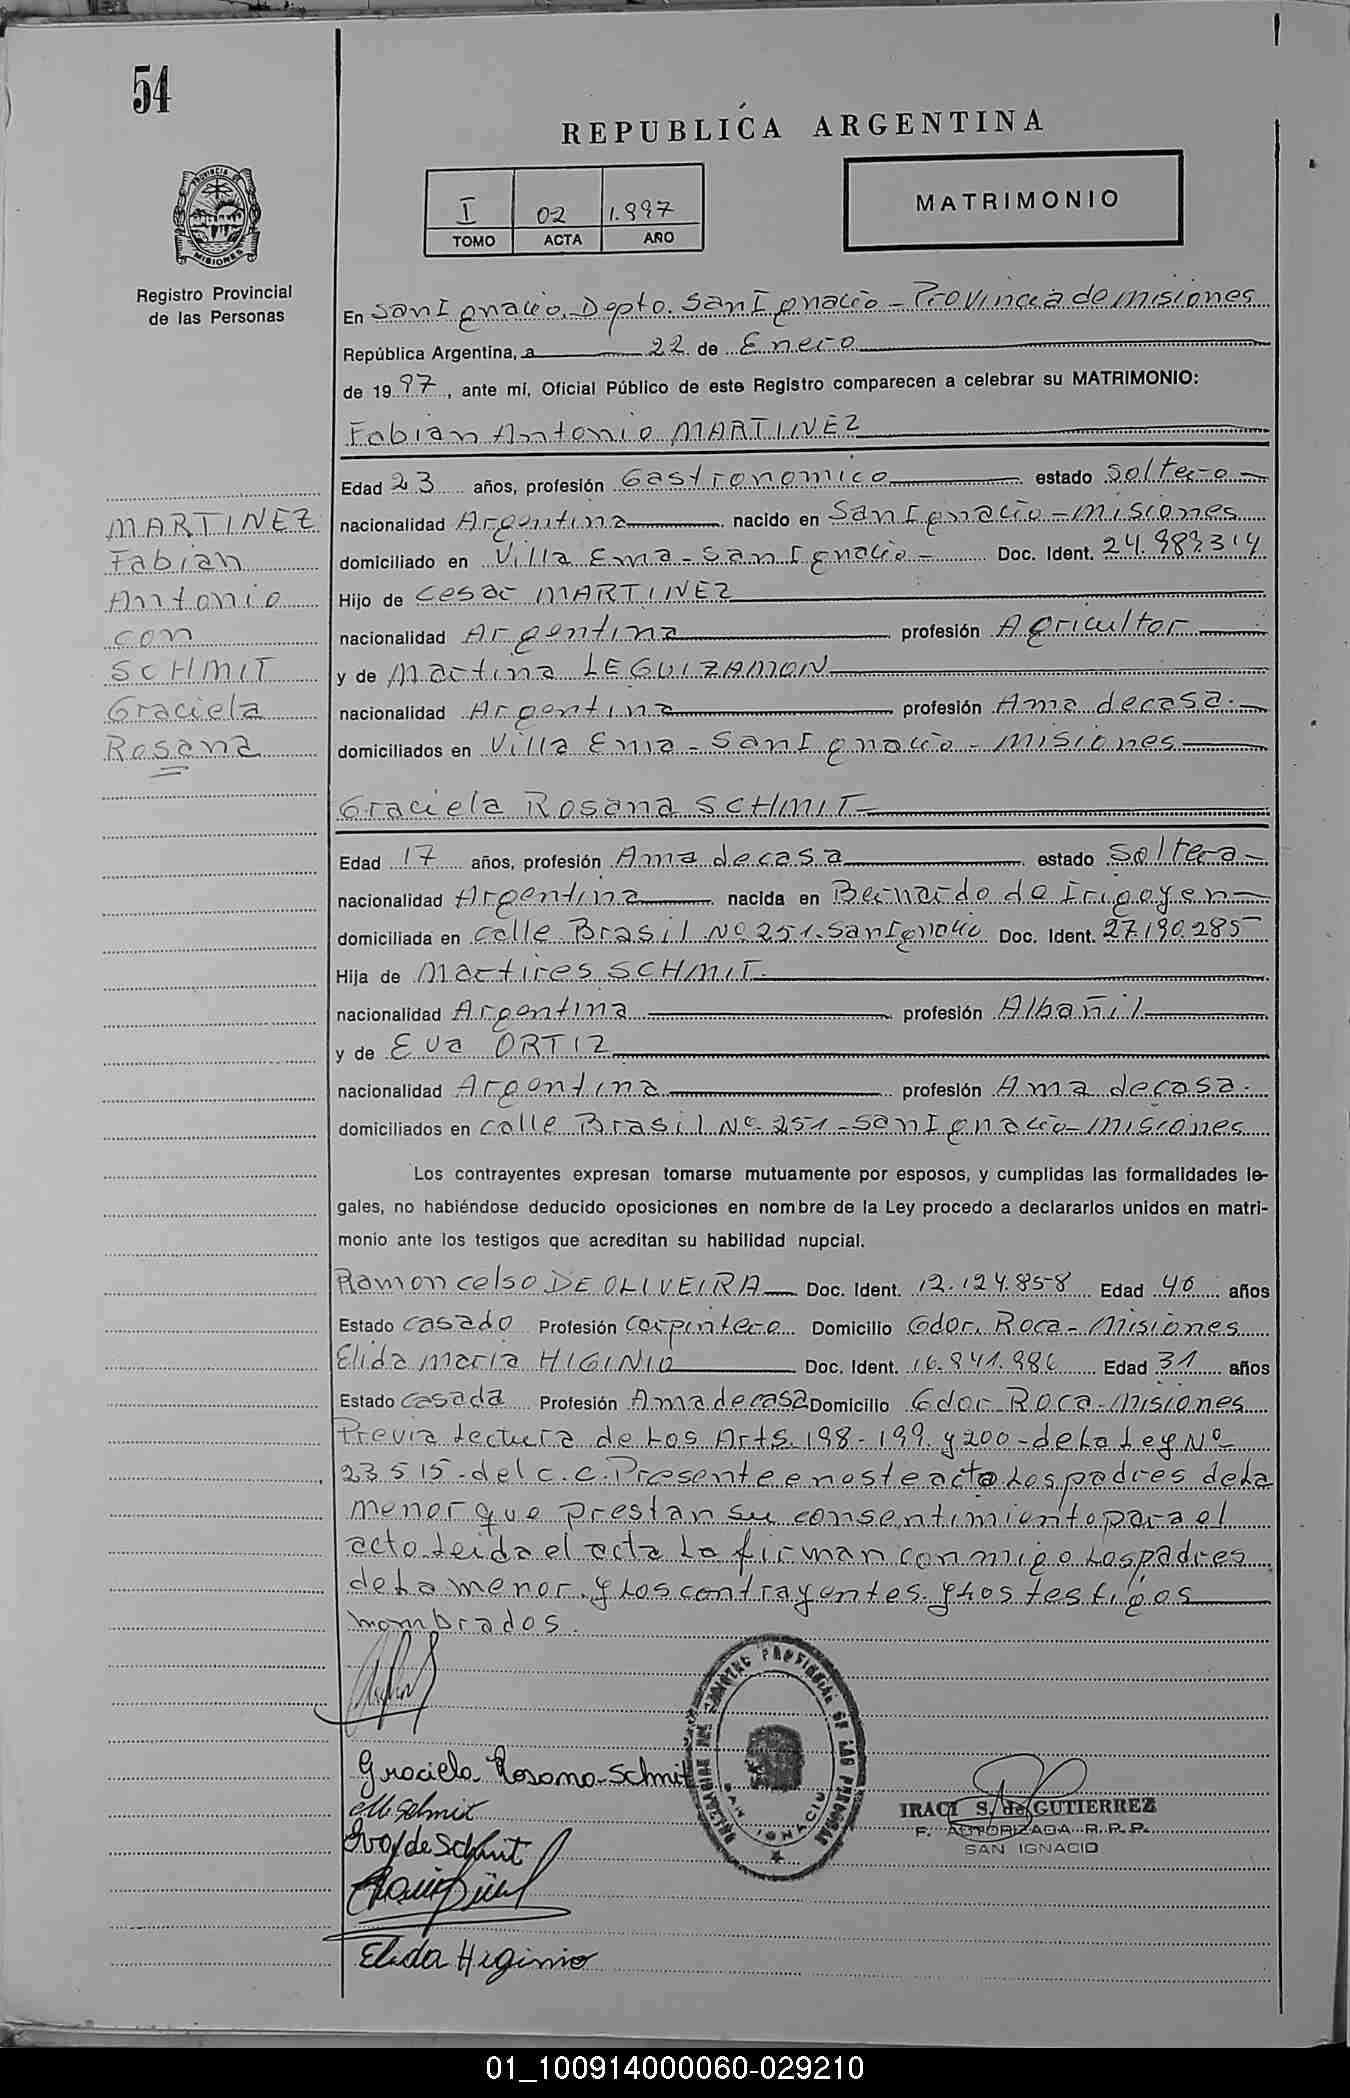 54
REPUBLICA ARGENTINA
I 02 1.997
TOMO ACTA AÑO
MATRIMONIO
PROVINCIA DE
MISIONES
Registro Provincial
de las Personas
En San Ignacio, Depto. San Ignacio - Provincia de Misiones
República Argentina, a 22 de Enero
de 1997, ante mí, Oficial Público de este Registro comparecen a celebrar su MATRIMONIO:
Fabian Antonio MARTINEZ
Edad 23 años, profesión Gastronomico estado Soltero
MARTINEZ
Fabian
Antonio
con
SCHMIT
Graciela
Rosana
nacionalidad Argentina nacido en San Ignacio - Misiones
domiciliado en Villa Ema - San Ignacio - Doc. Ident. 24.989.314
Hijo de Cesar MARTINEZ
nacionalidad Argentina profesión Agricultor
y de Martina LEGUIZAMON
nacionalidad Argentina profesión Ama de casa.
domiciliados en Villa Ema - San Ignacio - Misiones
Graciela Rosana SCHMIT
Edad 17 años, profesión Ama de casa estado Soltera
nacionalidad Argentina nacida en Bernardo de Irigoyen
domiciliada en calle Brasil Nº 251. San Ignacio Doc. Ident. 27.190.285
Hija de Martires SCHMIT.
nacionalidad Argentina profesión Albañil
y de Eva ORTIZ
nacionalidad Argentina profesión Ama de casa.
domiciliados en calle Brasil Nº 251 - San Ignacio - Misiones
Los contrayentes expresan tomarse mutuamente por esposos, y cumplidas las formalidades le-
gales, no habiéndose deducido oposiciones en nombre de la Ley procedo a declararlos unidos en matri-
monio ante los testigos que acreditan su habilidad nupcial.
Ramon Celso DE OLIVEIRA Doc. Ident. 12.124.858 Edad 40 años
Estado casado Profesión Carpintero Domicilio Gdor. Roca - Misiones
Elida Maria HIGINIO Doc. Ident. 16.841.986 Edad 31 años
Estado casada Profesión Ama de casa Domicilio Gdor Roca - Misiones
Previa Lectura de Los Arts. 198 - 199 y 200 - de La Ley Nº
23515 - del C.C. Presente en este acto Los padres de La
menor que prestan su consentimiento para el
acto. Leida el acta La firman conmigo Los padres
de La menor. y Los contrayentes. y Los testigos
nombrados.
Graciela Rosana Schmit
M Schmit
Eva O de Schmit
Elida Higinio
DELEGACION DEL REGISTRO PROVINCIAL DE LAS PERSONAS
SAN IGNACIO
IRACI S. de GUTIERREZ
F. AUTORIZADA R. P. P.
SAN IGNACIO
01_100914000060-029210